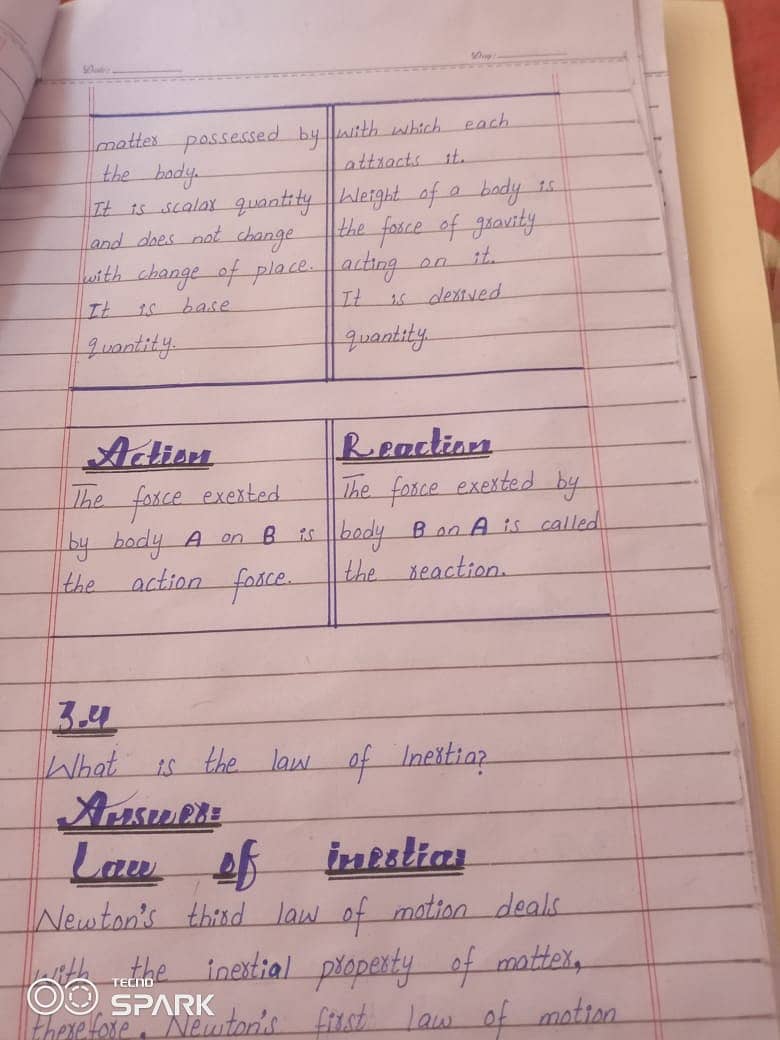 Date:
Day:
matter possessed by
the body.
It is scalar quantity
and does not change
with change of place.
It is base
quantity.
with which each
attracts it.
Weight of a body is
the force of gravity
acting on it.
It is derived
quantity.
Action
The force exerted
by body A on B is
the action force.
Reaction
The force exerted by
body B on A is called
the reaction.
3.4
What is the law of Inertia?
Answer:
Law of inertia:
Newton's third law of motion deals
with the inertial property of matter,
therefore, Newton's first law of motion
TECNO
SPARK